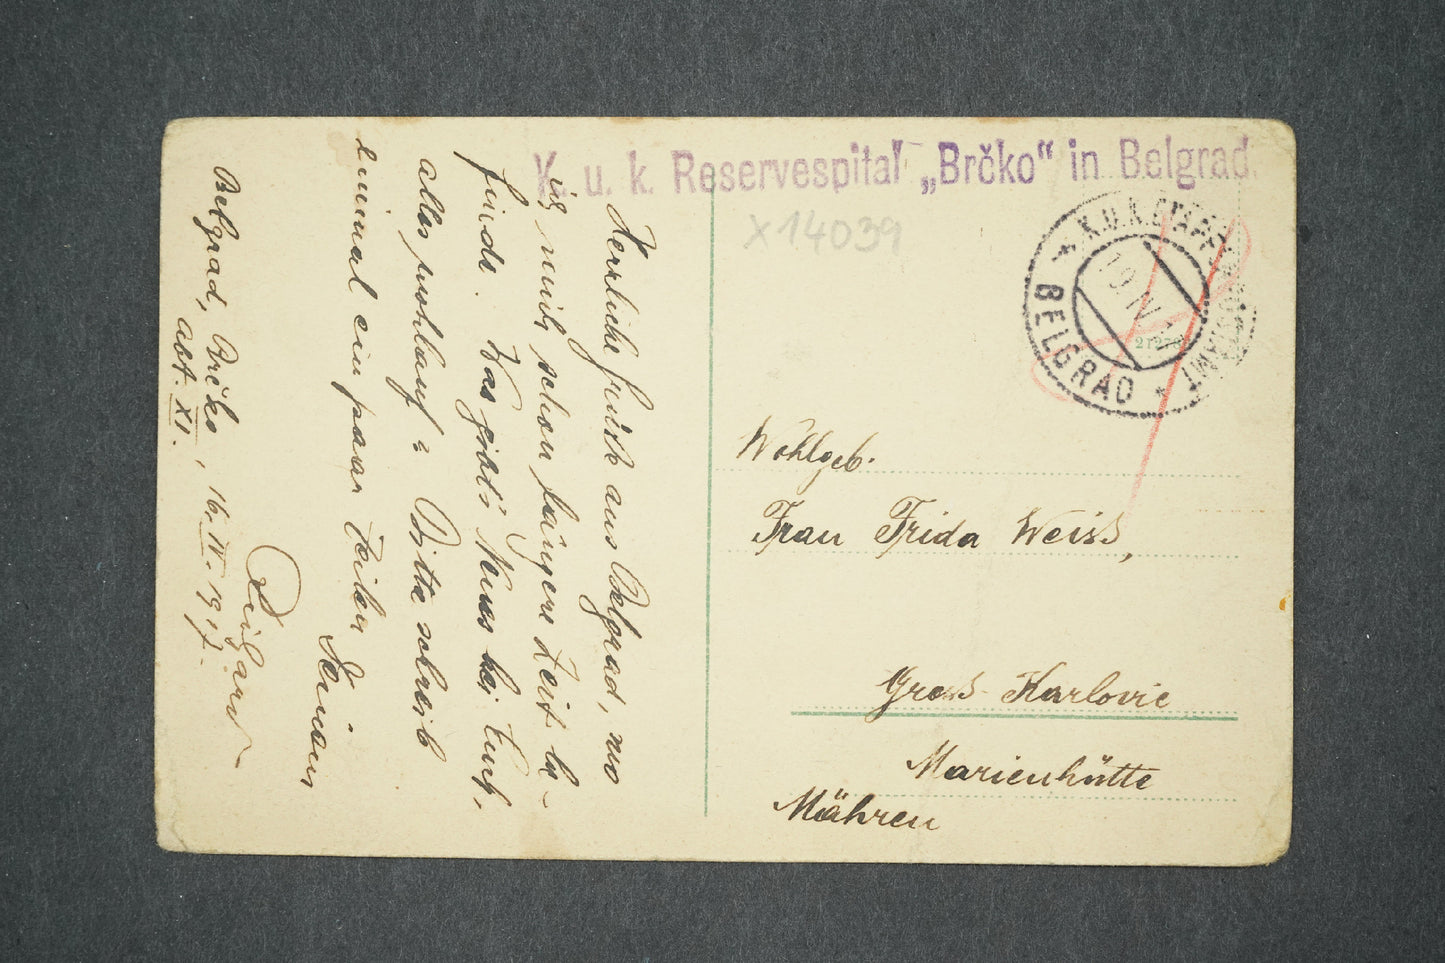 K. u. k. Reservespital „Brčko“ in Belgrad.
X 14039
K.U.K. ETAPPENPOSTAMT
BELGRAD
19 IV 17
2127
Wohlgeb.
Frau Frida Weiss,
Gross-Karlovic
Marienhütte
Mähren
Herzliche Grüsse aus Belgrad, wo
ich mich schon längere Zeit be-
finde. Was gibt's Neues bei Euch,
alles wohlauf? Bitte schreib
einmal ein paar Zeilen
Belgrad, Brčko, 16. IV. 1917.
Abt. XI.